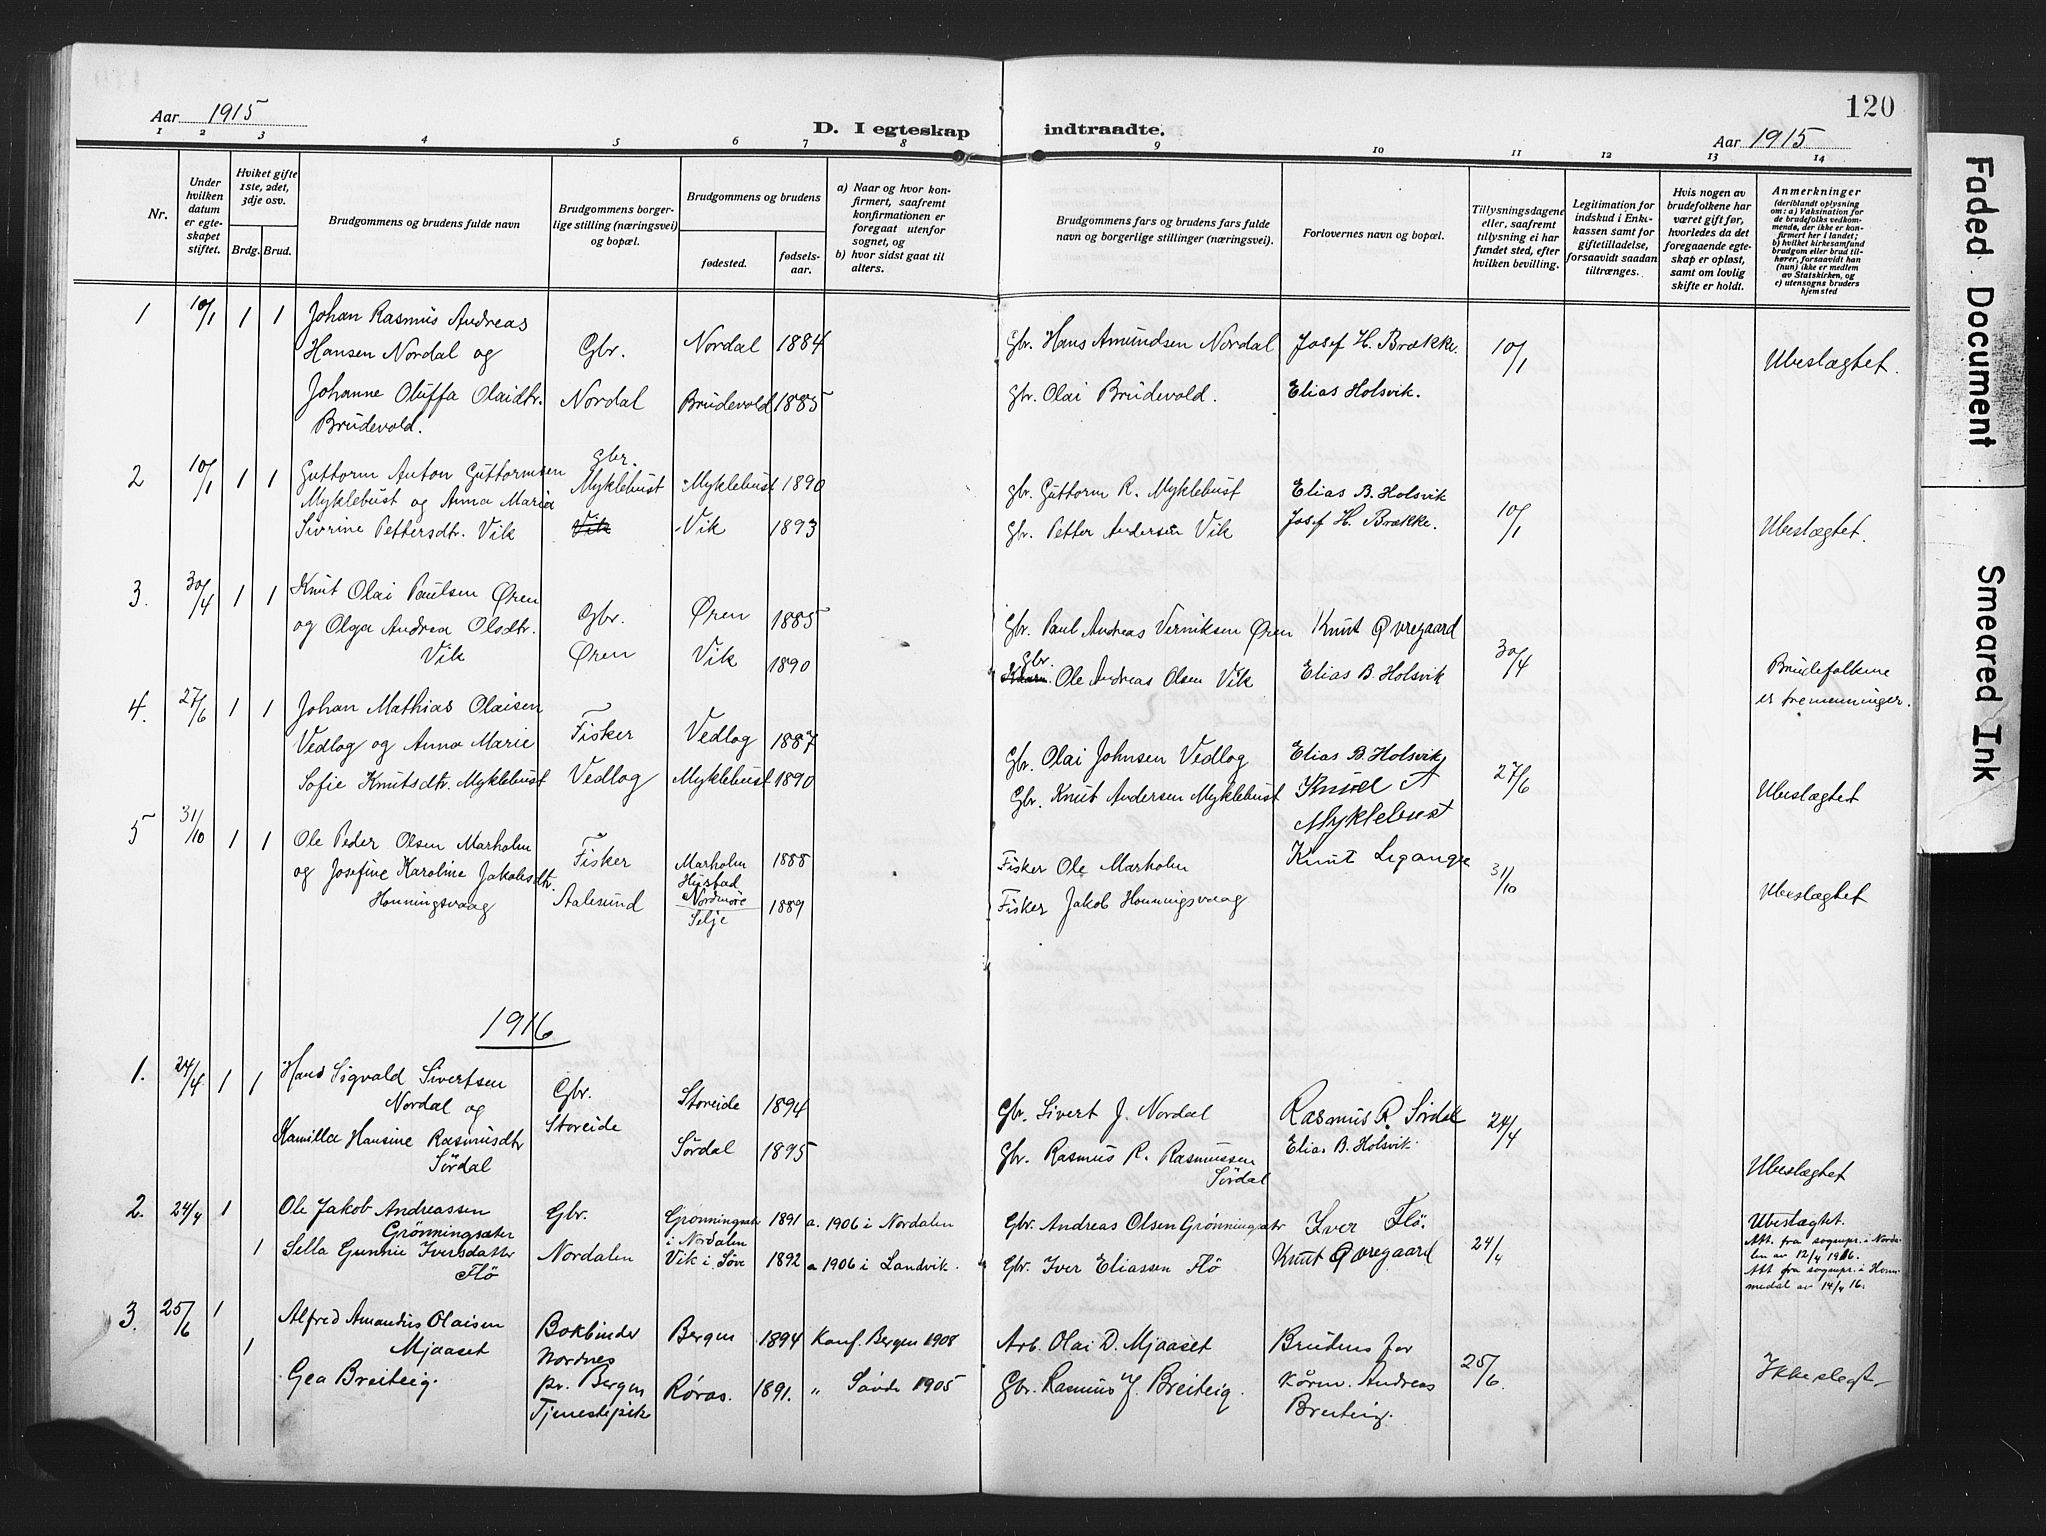 Aar 1915
D. I egteskap indtraadte.
Aar 1915
120
1 2 3 4 5 6 7 8 9 10 11 12 13 14
Nr.
Under hvilken datum er egteskapet stiftet.
Hviket gifte 1ste, 2det, 3dje osv.
Brdg. Brud.
Brudgommens og brudens fulde navn
Brudgommens borgerlige stilling (næringsvei) og bopæl.
Brudgommens og brudens
fødested. fødselsaar.
a) Naar og hvor konfirmert, saafremt konfirmationen er foregaat utenfor sognet, og
b) hvor sidst gaat til alters.
Brudgommens fars og brudens fars fulde navn og borgerlige stillinger (næringsvei).
Forlovernes navn og bopæl.
Tillysningsdagene eller, saafremt tillysning ei har fundet sted, efter hvilken bevilling.
Legitimation for indskud i Enkekassen samt for giftetilladelse, forsaavidt saadan tiltrænges.
Hvis nogen av brudefolkene har været gift før, hvorledes da det foregaaende egteskap er opløst, samt om lovlig skifte er holdt.
Anmerkninger
(deriblandt oplysning om: a) Vaksination for de brudefolks vedkommende, der ikke er konfirmert her i landet; b) hvilket kirkesamfund brudgom eller brud tilhører, forsaavidt han (hun) ikke er medlem av Statskirken, og c) utensogns bruders hjemsted
1 10/1 1 1 Johan Rasmus Andreas
Hansen Nordal og Gbr. Nordal 1884 Gbr. Hans Amundsen Nordal Josef H. Brække. 10/1 Ubeslægtet.
Johanne Oluffa Olaidtr. Nordal Brudevold 1885 Gbr. Olai Brudevold. Elias Holsvik.
Brudevold.
2 10/1 1 1 Guttorm Anton Guttormsen gbr. Myklebust Myklebust 1890 gbr. Guttorm R. Myklebust Elias B. Holsvik
Myklebust og Anna Maria
Sivrine Pettersdtr. Vik Vik Vik 1893 Gbr. Petter Andersen Vik Josef H. Brække. 10/1 Ubeslægtet.
3. 30/4 1 1 Knut Olai Paulsen Øren
og Olga Andrea Olsdtr. Gbr. Øren 1885 Gbr. Paul Andreas Verniksen Øren Knut Øvregaard
Vik Øren Vik 1890 Gbr. Ole Andreas Olsen Vik Elias B. Holsvik 30/4 Brudefolkene
er tremenninger.
4. 27/6 1 1 Johan Mathias Olaisen
Vedlog og Anna Marie Fisker Vedlog 1887 Gbr. Olai Johnsen Vedlog Elias B. Holsvik
Sofie Knutsdtr. Myklebust Vedlog Myklebust 1890 Gbr. Knut Andersen Myklebust Knud A Myklebust 27/6 Ubeslægtet
5 31/10 1 1 Ole Peder Olsen Marholm Fisker Marholm Hustad Nordmøre 1888 Fisker Ole Marholm Knut Legangr
og Josefine Karoline Jakobsdtr. Aalesund Selje 1889 Fisker Jakob Honningsvaag 31/10 Ubeslægtet
Honningsvaag
1916
1. 24/4 1 1 Hans Sigvald Sivertsen
Nordal og Gbr. Storeide 1894 Gbr. Sivert J. Nordal Rasmus R. Sørdal 24/4
Kamilla Hansine Rasmusdtr Storeide Sørdal 1895 Gbr. Rasmus R. Rasmussen Sørdal Elias B. Holsvik.
Sørdal Ubeslægtet
2. 24/4 1 Ole Jakob Andreassen Gbr. Grønningsæter i Nordalen 1891 a. 1906 i Nordalen Gbr. Andreas Olsen Grønningsætr Iver Flö. Ubeslægtet.
Grönningsæter
1 Sella Gunnie Iversdatter Nordalen Vik i Söve 1892 a 1906 i Landvik. Gbr. Iver Eliassen Flö Knut Øvregaard 24/4
Flö
Att. fra sognepr. i Nordalen av 12/4 1916.
Att fra sognepr. i Hommedal av 14/4 16.
3. 25/6 1 Alfred Amandus Olaisen Bokbinder Bergen 1894 Konf. Bergen 1908 Arb. Olai D. Mjaaset Brudens far
Mjaaset Nordnes
1 Gea Breiteig. pr. Bergen Røras. 1891. " Sövde 1905 Gbr. Rasmus J. Breiteig. Kårm. Andreas 25/6 Ikke slegt
Tjenestepik Breiteig.
Faded Document
Smeared Ink